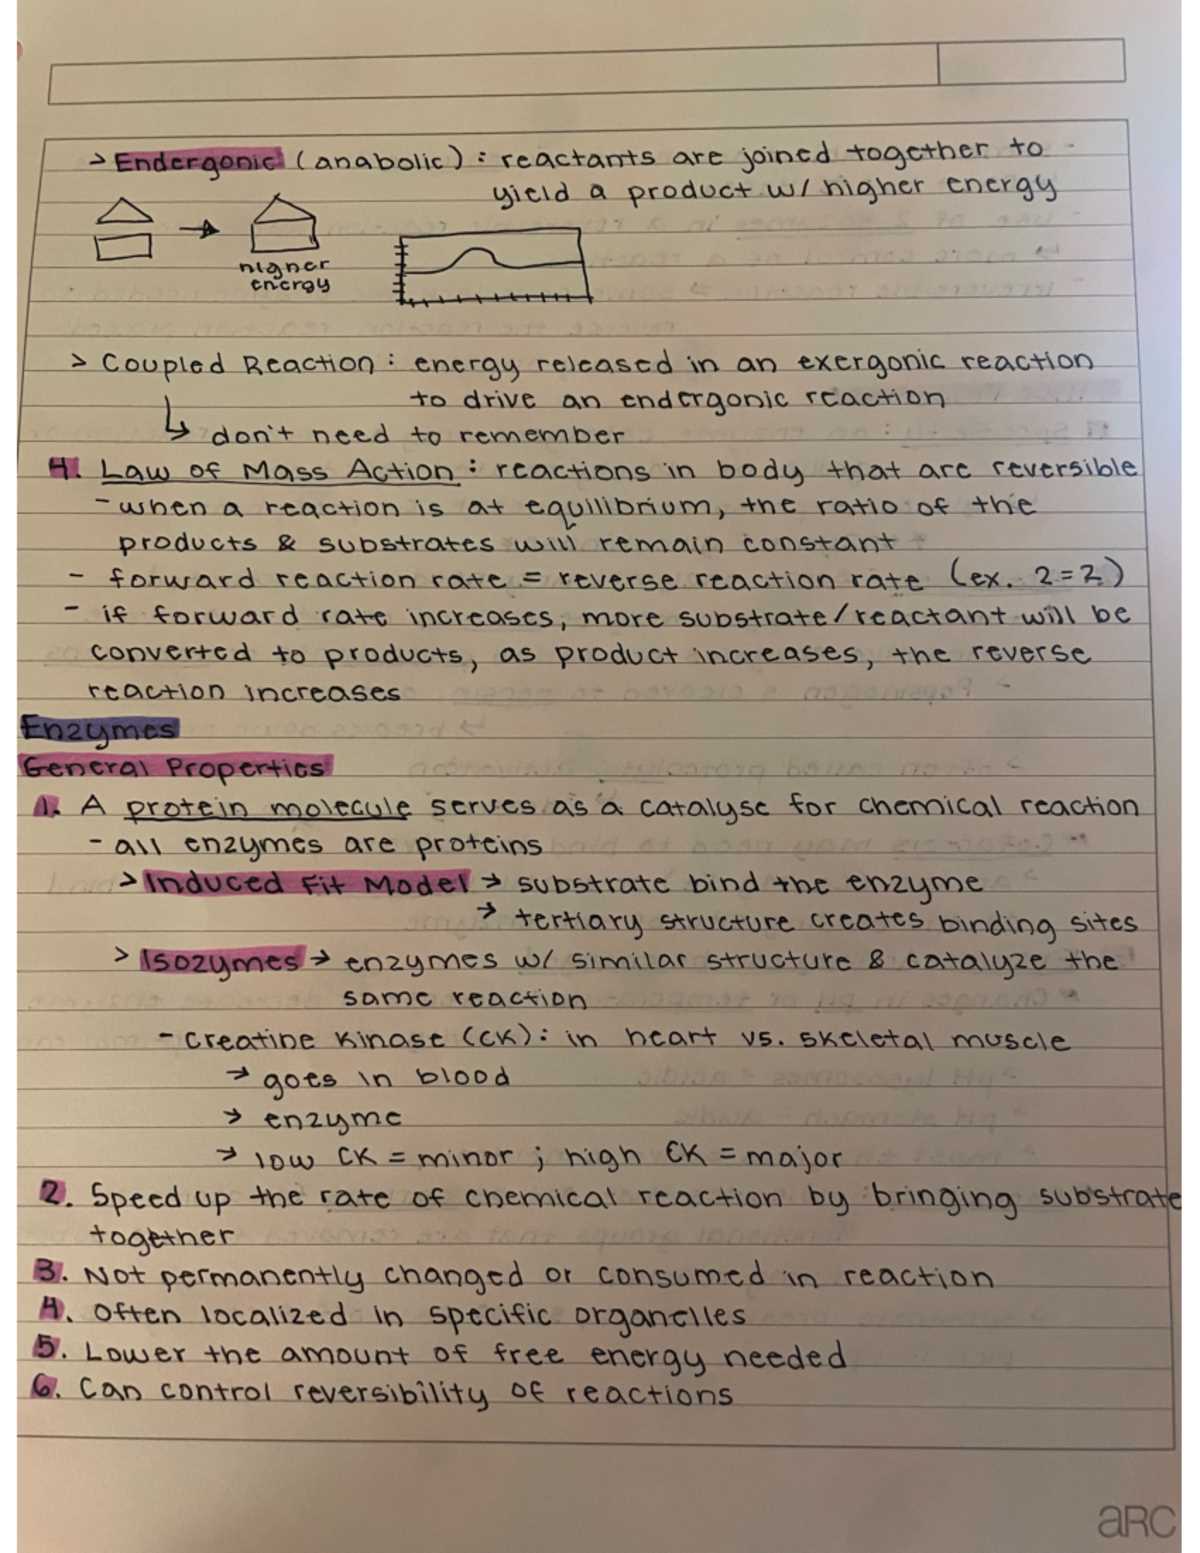 > Endergonic (anabolic): reactants are joined together to
yield a product w/ higher energy
higher
energy
> Coupled Reaction: energy released in an exergonic reaction
to drive an endergonic reaction
↳ don't need to remember
4. Law of Mass Action: reactions in body that are reversible
- when a reaction is at equilibrium, the ratio of the
products & substrates will remain constant
- forward reaction rate = reverse reaction rate (ex. 2=2)
- if forward rate increases, more substrate/reactant will be
converted to products, as product increases, the reverse
reaction increases
Enzymes
General Properties
1. A protein molecule serves as a catalyse for chemical reaction
- all enzymes are proteins
> Induced Fit Model → substrate bind the enzyme
→ tertiary structure creates binding sites
> Isozymes → enzymes w/ similar structure & catalyze the
same reaction
- creatine kinase (CK): in heart vs. skeletal muscle
→ goes in blood
→ enzyme
→ low CK = minor ; high CK = major
2. Speed up the rate of chemical reaction by bringing substrate
together
3. Not permanently changed or consumed in reaction
4. Often localized in specific organelles
5. Lower the amount of free energy needed
6. Can control reversibility of reactions
aRC